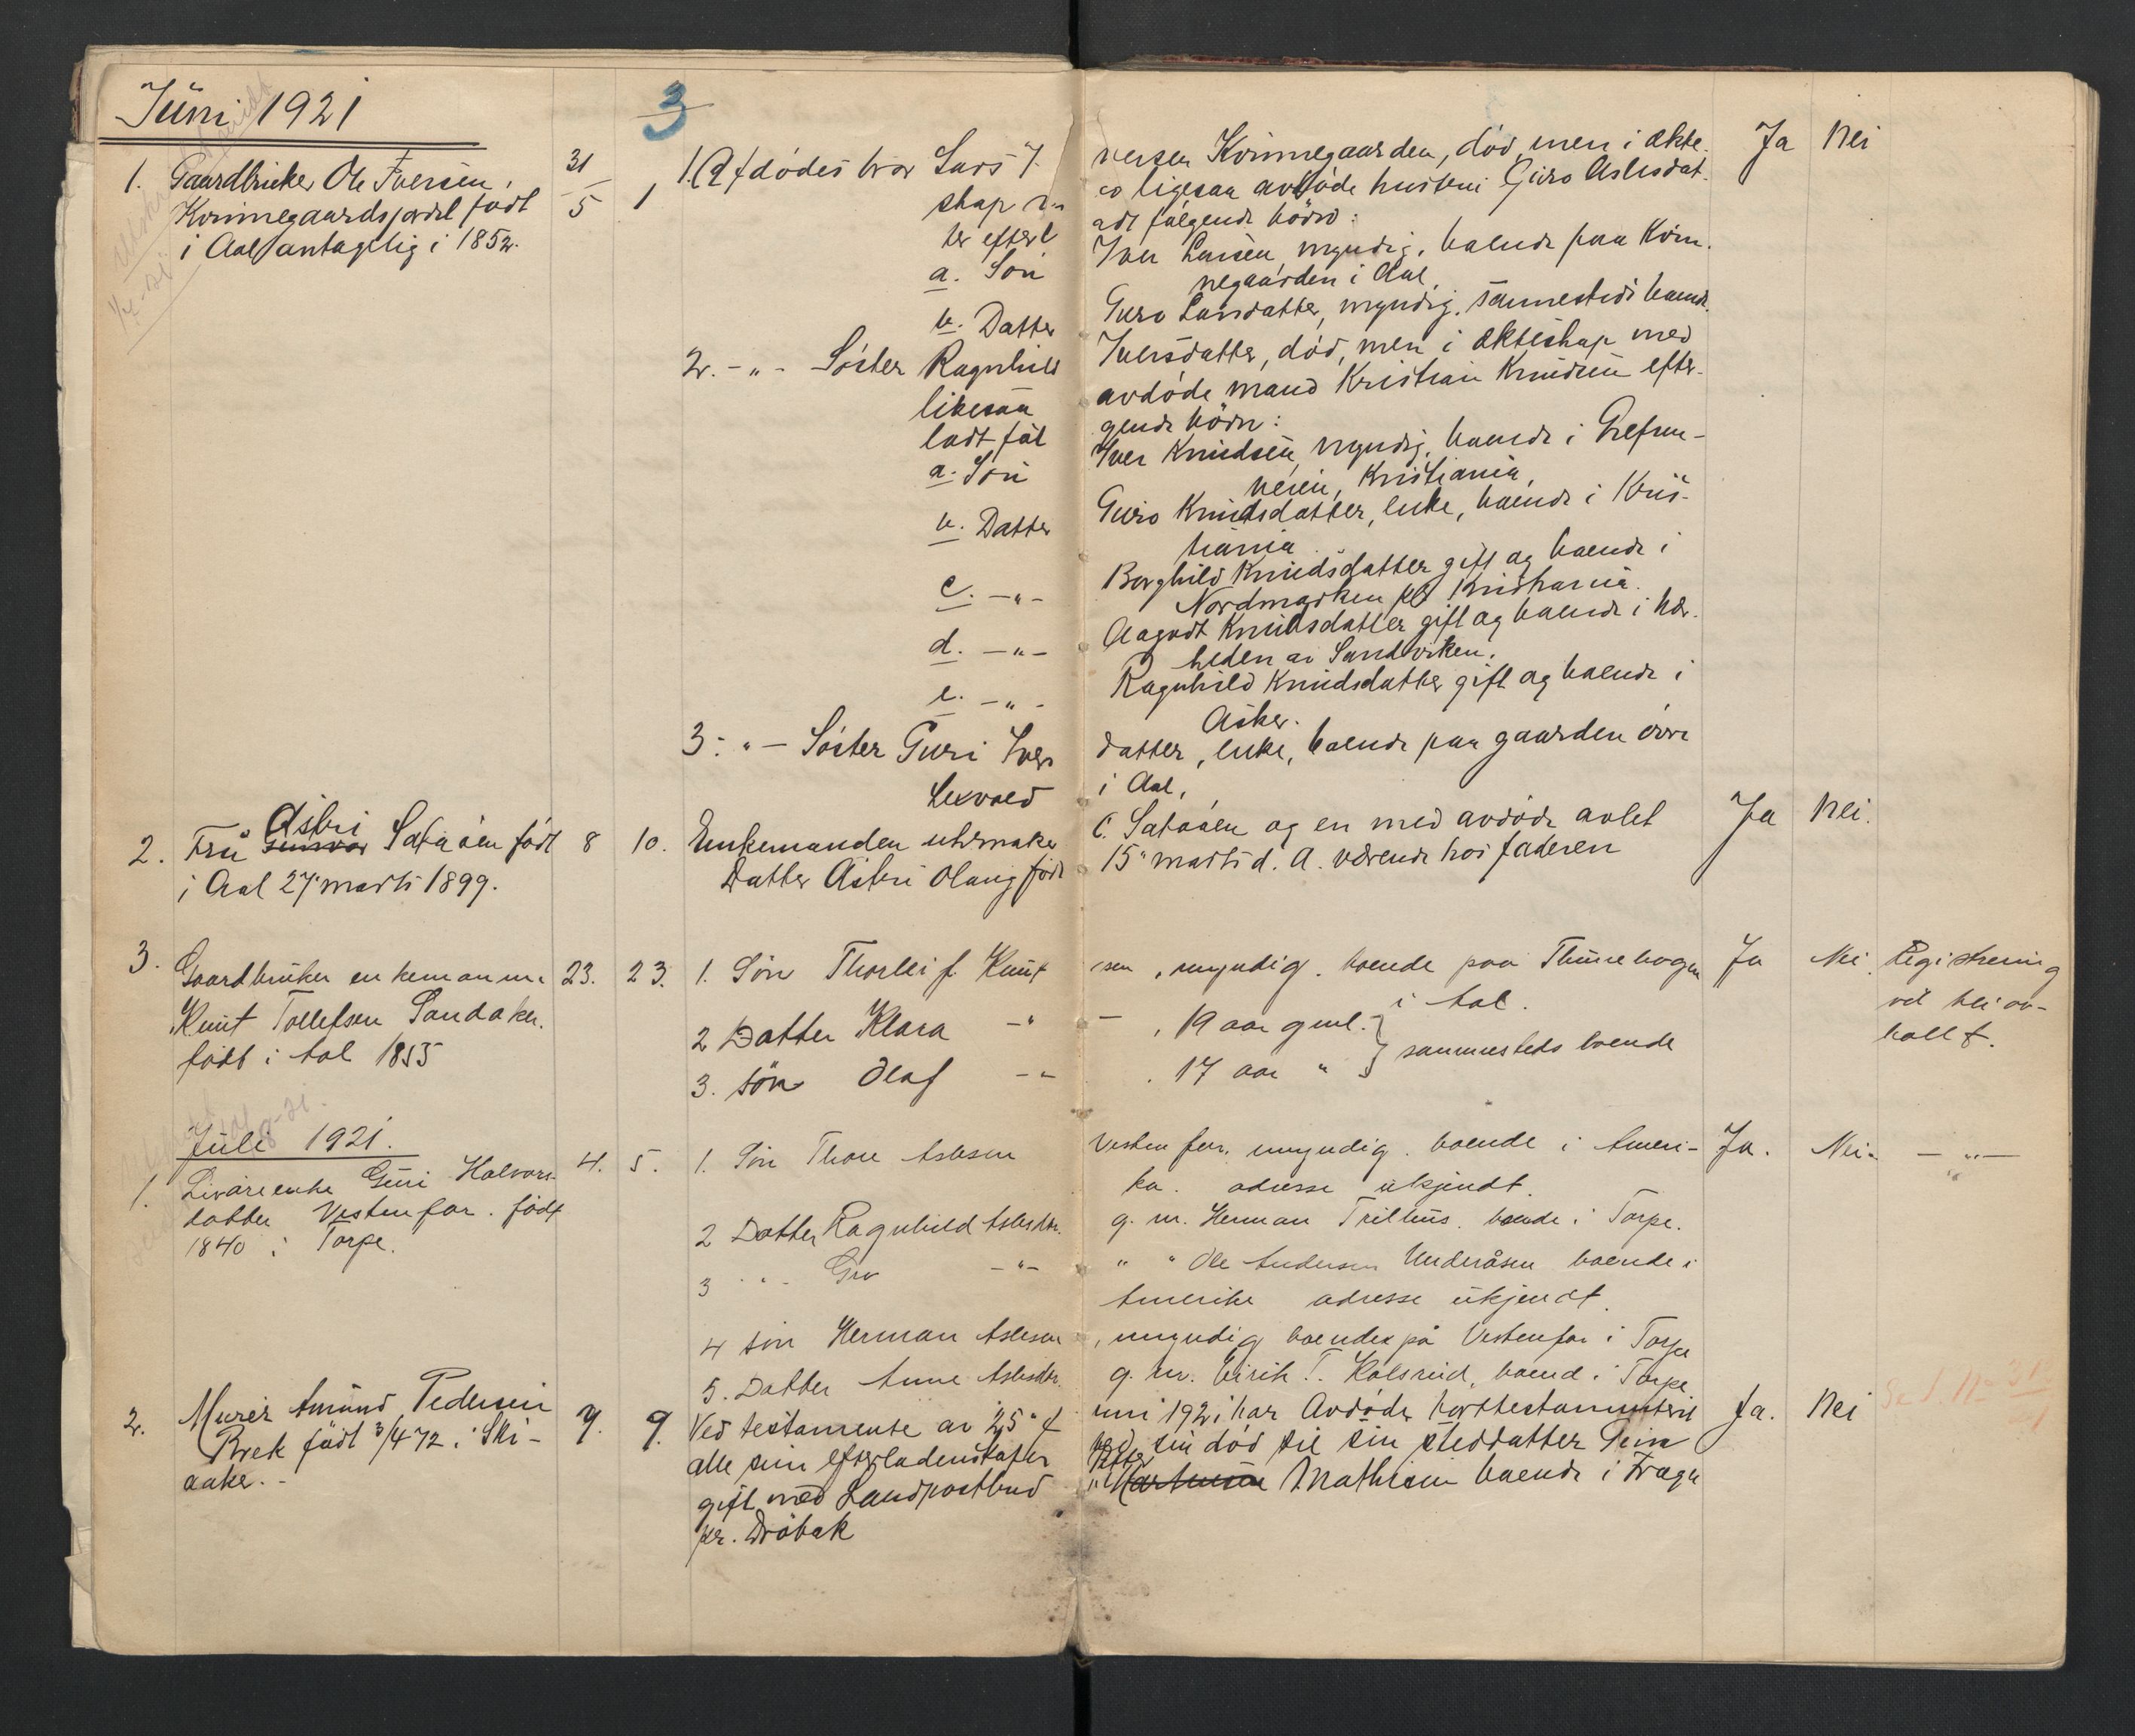 Juni 1921
3
1. Gaardbruker Ole Iversen, 31/5 1 1. Afdødes bror Lars Iversen Kvinnegaarden, død, men i ækte- Ja Nei
Kvinnegaardsjordet født skap med ligesaa avdøde hustru Guro Aslesdat-
i Aal antagelig i 1852. ter efterladt følgende børn:
a. Søn Iver Larsen, myndig, boende paa Kvin-
negaarden i Aal,
b. Datter Guro Larsdatter, myndig, sammesteds boende.
2. -"- Søster Ragnhild Iversdatter, død, men i ekteskap med
likesaa avdøde mand Kristian Knudsen efter-
ladt følgende børn:
a. Søn Iver Knudsen, myndig, boende i Grefsen-
veien, Kristiania,
b. Datter Guro Knudsdatter, enke, boende i Kris-
tiania
c. -"- Borghild Knudsdatter gift og boende i
Nordmarken pr Kristiania.
d. -"- Aagodt Knudsdatter gift og boende i nær-
heden av Sandviken.
e. -"- Ragnhild Knudsdatter gift og boende i
Asker.
3. -"- Søster Guri Iversdatter, enke, boende paa gaarden øvre
Lexvold i Aal,
Astri
2. Fru Gunvor Sataøen født 8 10. Enkemanden uhrmaker C. Sataøen og en med avdøde avlet Ja Nei.
i Aal 27 marts 1899. Datter Astri Olaug født 15 marts d. A. værende hos faderen
3. Gaardbruker enkemann 23. 23. 1. Søn Thorleif Knutsen, myndig, boende paa Thunehagen Ja Nei. Registrering
i Aal. vil bli av-
Knut Tollefsen Sandaker. 2 Datter Klara -"- , 19 aar gml. holdt.
født i Aal 1855 3. Søn Olaf -"- , 17 aar " } sammesteds boende
Juli 1921.
1. Livøreenke Guri Halvors- 4. 5. 1. Søn Thore Aslesen Vestenfor, myndig, boende i Ameri- Ja. Nei. -"-
datter Vestenfor. født ka. adresse ukjendt.
1840 i Torpe. 2 Datter Ragnhild Aslesdtr. g. m. Herman Trillhus, boende i Torpe.
3 -"- Gro -"- " " Ole Andersen Underåsen boende i
Amerika adresse ukjendt.
4 Søn Herman Aslesen, myndig boende på Vestenfor i Torpe
5. Datter Anne Aslesdtr. g. m. Eirik T. Kolsrud, boend i Torpe
2. Murer Amund Pedersen 7. 9. Ved testamente av 25 juni 1921 har Avdøde borttestamentert Ja. Nei
Brek født 3/4 72 i Ski- alle sine efterladenskaper ved sin død til sin steddatter
aaker. - gift med Landpostbud Mathisen boende i Frogn
pr. Drøbak